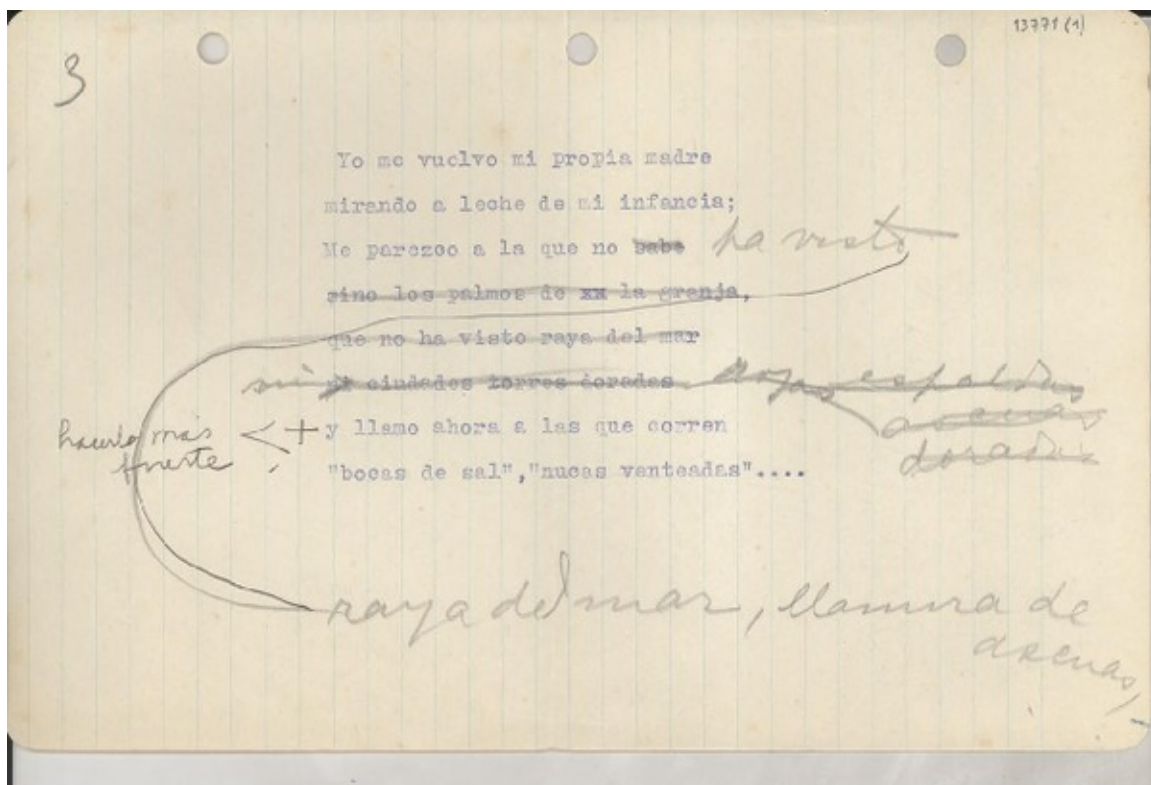 13771 (1)
3
Yo me vuelvo mi propia madre
mirando a leche de mi infancia;
Me parezco a la que no sabe ha visto
sino los palmos de xx la granja,
que no ha visto raya del mar
ciudades torres doradas espaldas
ascuas
doradas
hacerlo más
fuerte
+ y llamo ahora a las que corren
"bocas de sal","nucas venteadas"....
raya del mar, llanura de
ascuas,